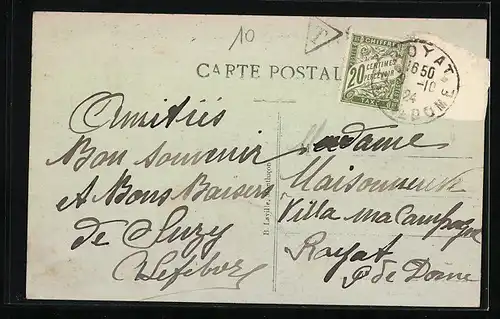 10
T
CARTE POSTALE
CHIFFRE
20
CENTIMES
A
PERCEVOIR
TAXE
ROYAT
16 50
-10
24
DOME
Amitiés
Bon souvenir
et Bons Baisers
de Suzy
Lefebvre
Madame
Maisonneuve
Villa ma Campagne
Royat
P de Dome